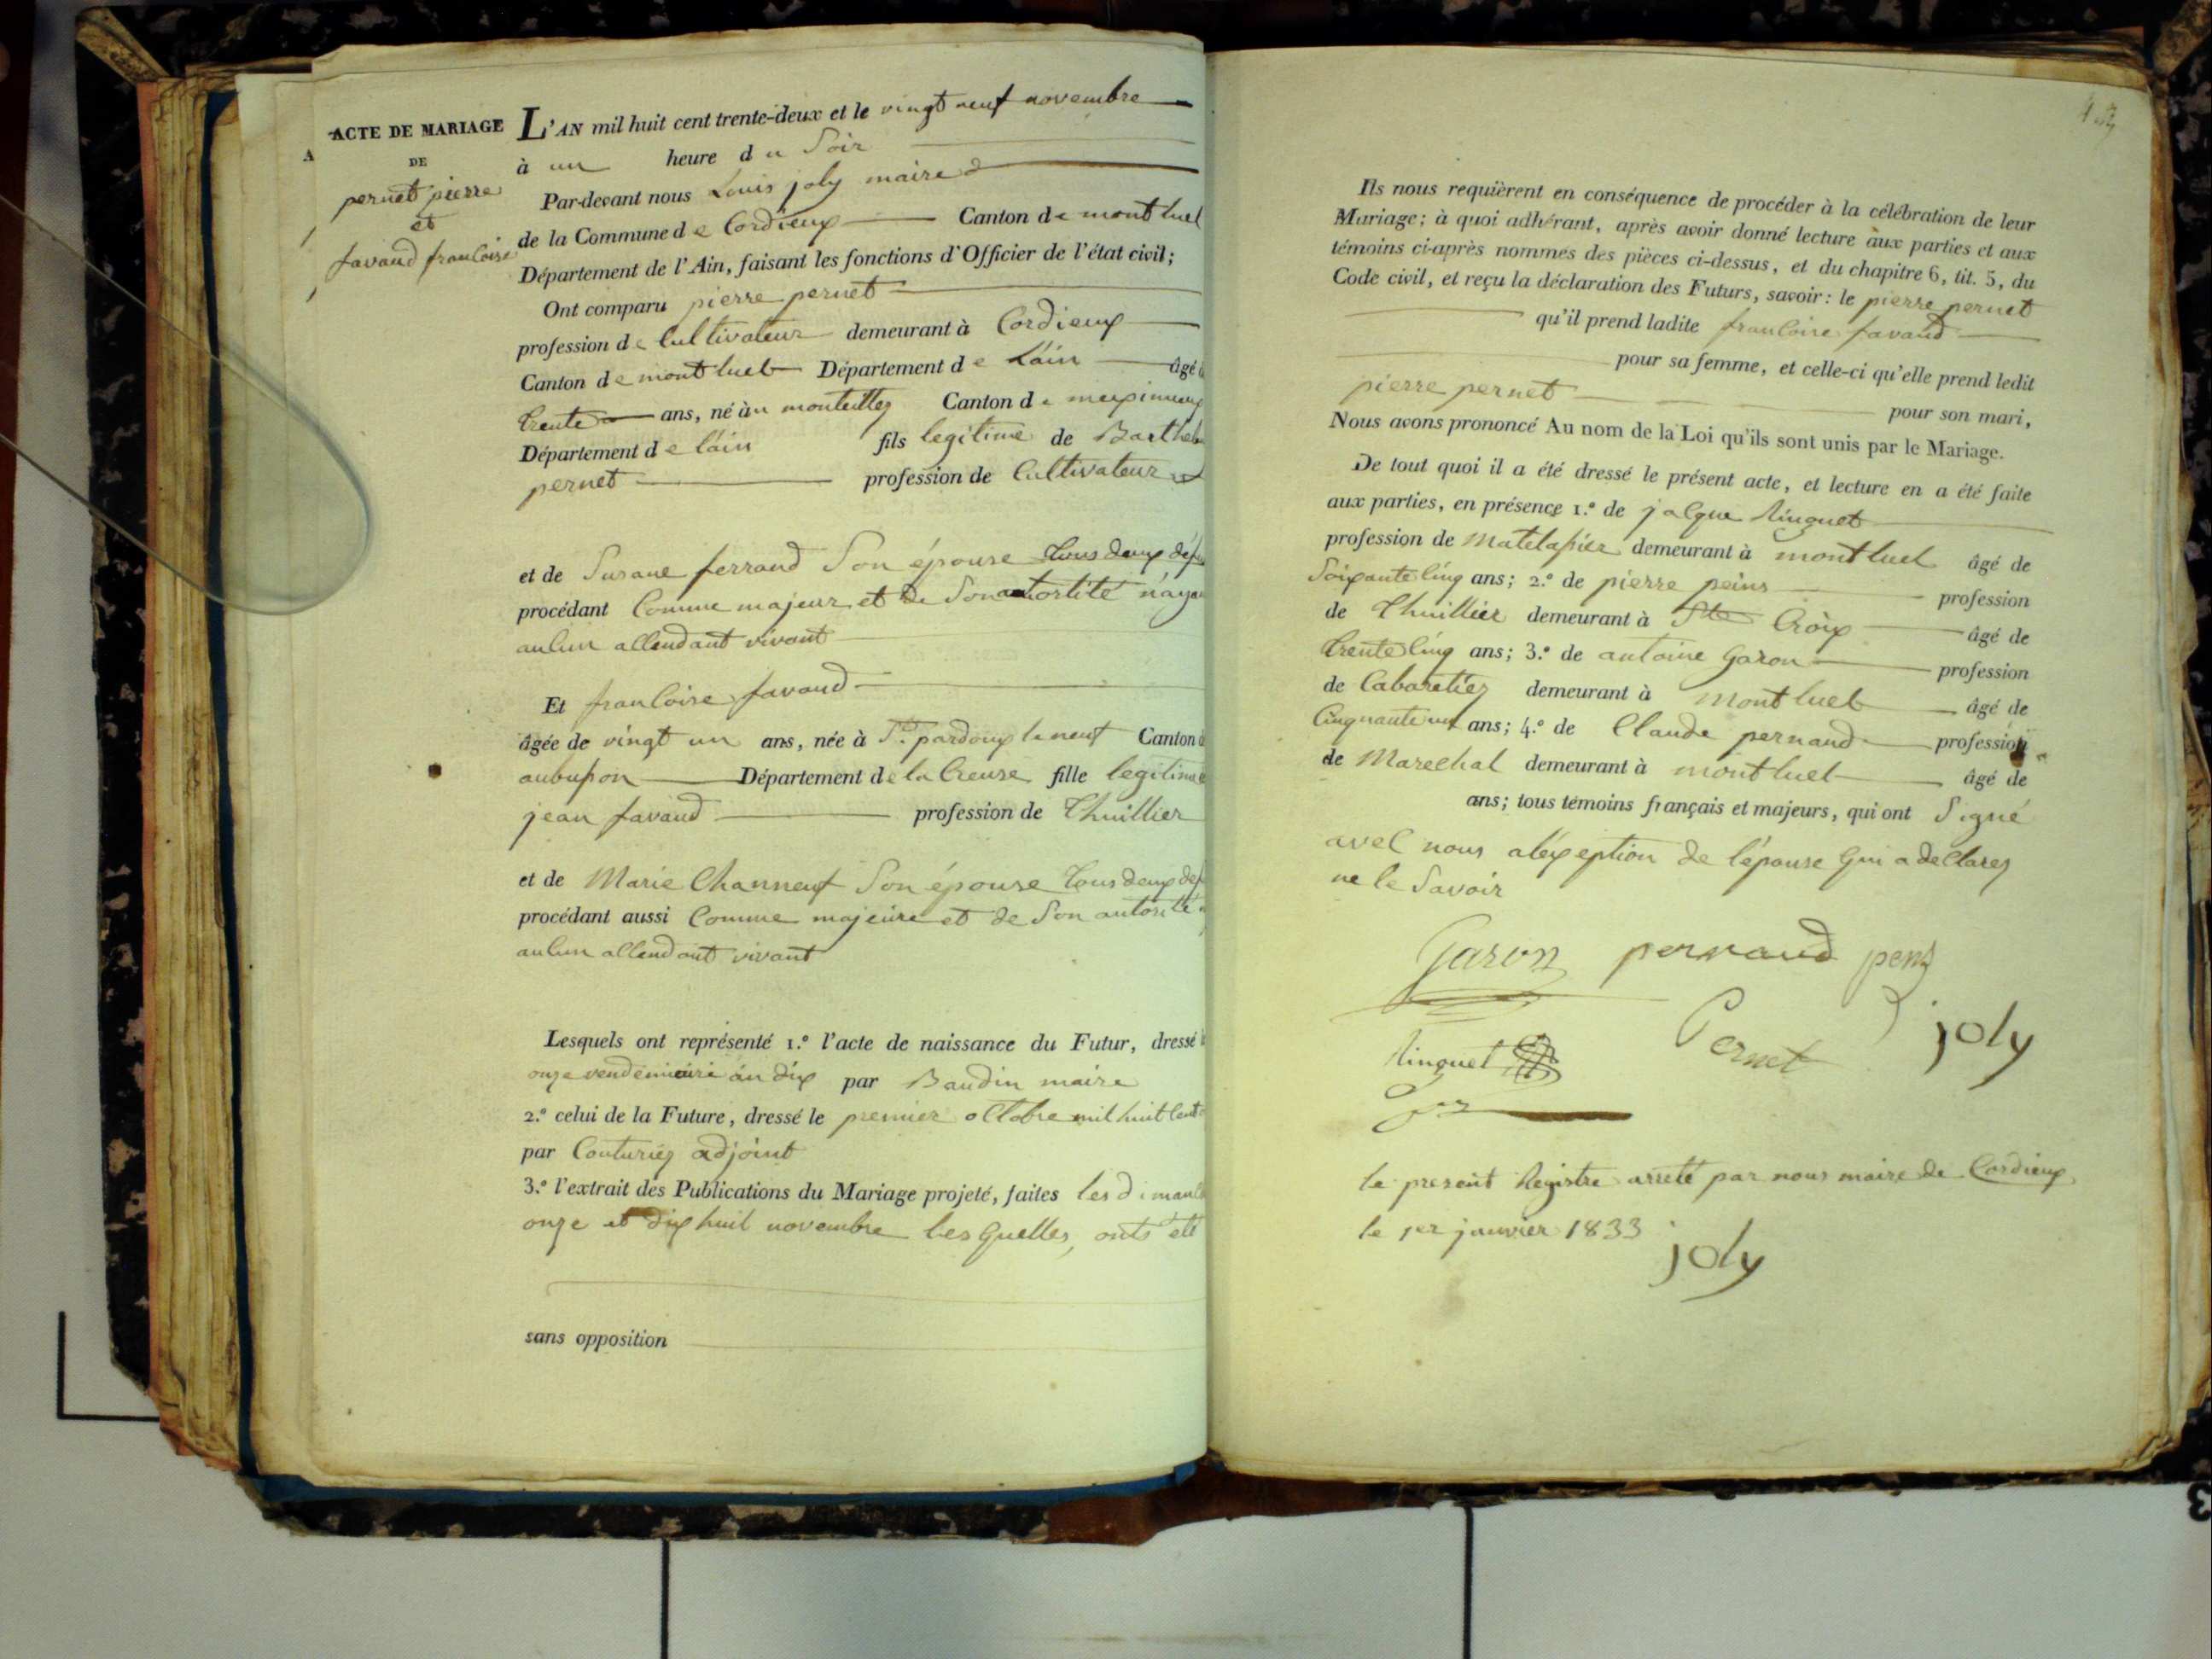 ACTE DE MARIAGE
DE
pernet pierre
et
favaud francoise
A
L'AN mil huit cent trente-deux et le vingt neuf novembre
à un heure du Soir
Par-devant nous Louis joly maire
de la Commune de Cordieux Canton de montluel
Département de l'Ain, faisant les fonctions d'Officier de l'état civil;
Ont comparu pierre pernet
profession de Cultivateur demeurant à Cordieux
Canton de montluel Département de L'áin âgé
trente ans, né à montellier Canton de
Département de l'áin fils legitime de Barthel
pernet profession de Cultivateur
et de Susane ferrand Son épouse tous deux déf
procédant Comme majeur et de Son n'aya
aucun assendant vivant
Et francoise favaud
âgée de vingt un ans, née à St. pardoux le neuf Canton
aubusson Département de la Creuse fille legitime
jean favaud profession de Thuillier
et de Marie Channeuf Son épouse tous deux def
procédant aussi Comme majeure et de Son autorité
aucun assendant vivant
Lesquels ont représenté 1.º l'acte de naissance du Futur, dressé
onze vendemiaire án dix par Baudin maire
2.º celui de la Future, dressé le premier octobre mil huit cent
par Couturier adjoint
3.º l'extrait des Publications du Mariage projeté, faites les dimanc
onze et dix huit novembre lesquelles, onts été
sans opposition
Ils nous requièrent en conséquence de procéder à la célébration de leur
Mariage; à quoi adhérant, après avoir donné lecture aux parties et aux
témoins ci-après nommés des pièces ci-dessus, et du chapitre 6, tit. 5, du
Code civil, et reçu la déclaration des Futurs, savoir: le pierre pernet
qu'il prend ladite francoise favaud
pour sa femme, et celle-ci qu'elle prend ledit
pierre pernet pour son mari,
Nous avons prononcé Au nom de la Loi qu'ils sont unis par le Mariage.
De tout quoi il a été dressé le présent acte, et lecture en a été faite
aux parties, en présence 1.º de jacque linguet
profession de Matelassier demeurant à montluel âgé de
Soixante cinq ans; 2.º de pierre peins profession
de Thuillier demeurant à Ste Croix âgé de
trente cinq ans; 3.º de antoine Garon profession
de Cabaretier demeurant à montluel âgé de
Cinquante un ans; 4.º de Claude pernaud profession
de Marechal demeurant à montluel âgé de
ans; tous témoins français et majeurs, qui ont Signé
avec nous aléxeption de l'épouse qui a declarer
ne le Savoir
Garon pernaud
linguet Pernet joly
le present Registre arreté par nous maire de Cordieux
le 1er janvier 1833
joly